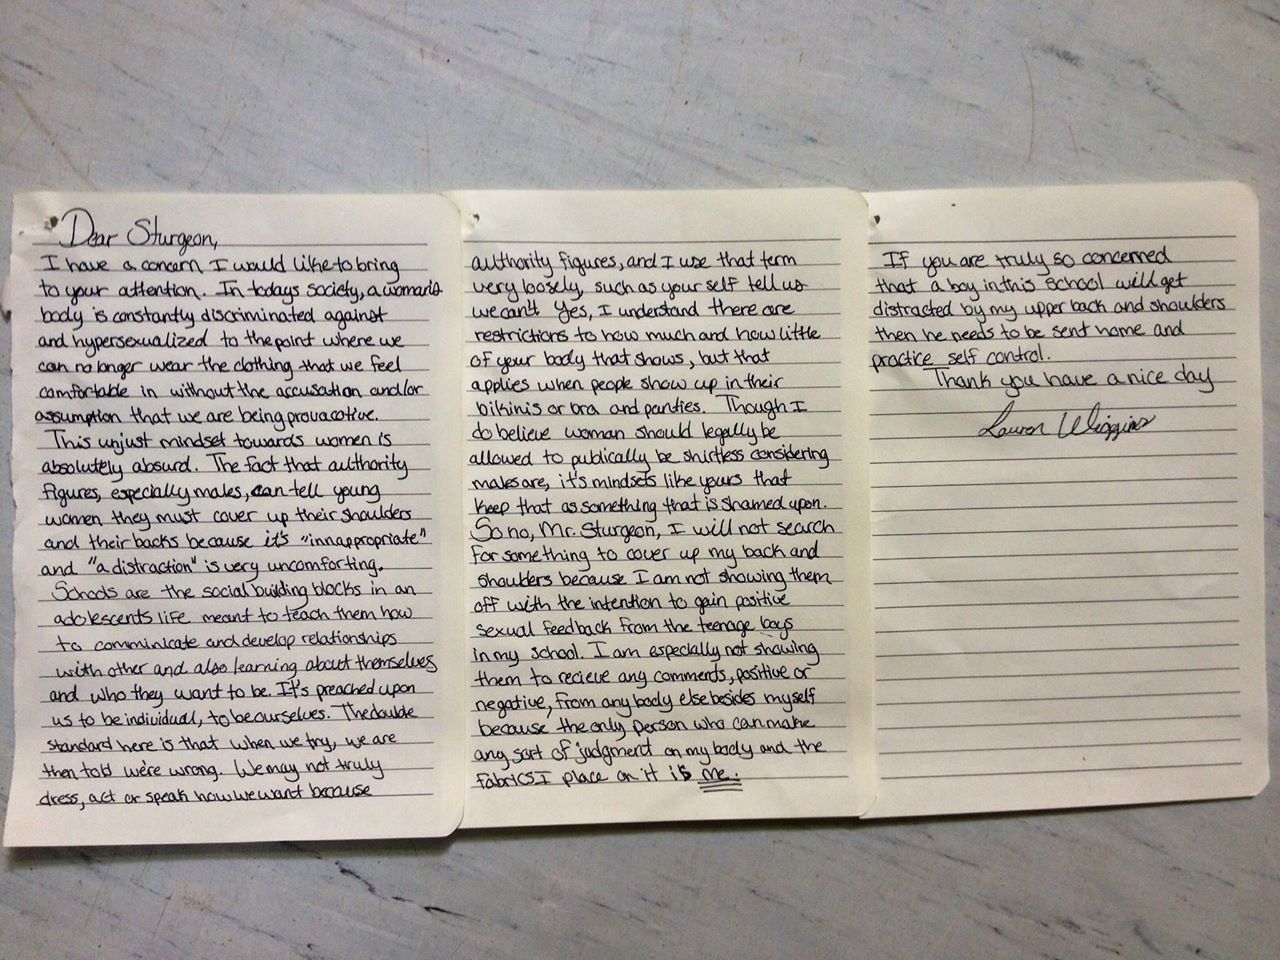 Dear Sturgeon,
I have a concern I would like to bring
to your attention. In todays society, a woman's
body is constantly discriminated against
and hypersexualized to the point where we
can no longer wear the clothing that we feel
comfortable in without the accusation and/or
assumption that we are being provacotive.
This unjust mindset towards women is
absolutely absurd. The fact that authority
figures, especially males, can tell young
women they must cover up their shoulders
and their backs because it's "innappropriate"
and "a distraction" is very uncomforting.
Schools are the social building blocks in an
adolescents life meant to teach them how
to commincate and develop relationships
with other and also learning about themselves
and who they want to be. It's preached upon
us to be individual, to be ourselves. The double
standard here is that when we try, we are
then told we're wrong. We may not truly
dress, act or speak how we want because
authority figures, and I use that term
very loosely, such as your self tell us
we can't. Yes, I understand there are
restrictions to how much and how little
of your body that shows, but that
applies when people show up in their
bikinis or bra and panties. Though I
do believe woman should legally be
allowed to publically be shirtless considering
males are, it's mindsets like yours that
keep that as something that is shamed upon.
So no, Mr. Sturgeon, I will not search
for something to cover up my back and
shoulders because I am not showing them
off with the intention to gain positive
sexual feedback from the teenage boys
in my school. I am especially not showing
them to recieve any comments, positive or
negative, from any body else besides myself
because the only person who can make
any sort of judgment on my body and the
fabrics I place on it is me.
If you are truly so concerned
that a boy in this school will get
distracted by my upper back and shoulders
then he needs to be sent home and
practice self control.
Thank you have a nice day
Lauren Wiggins